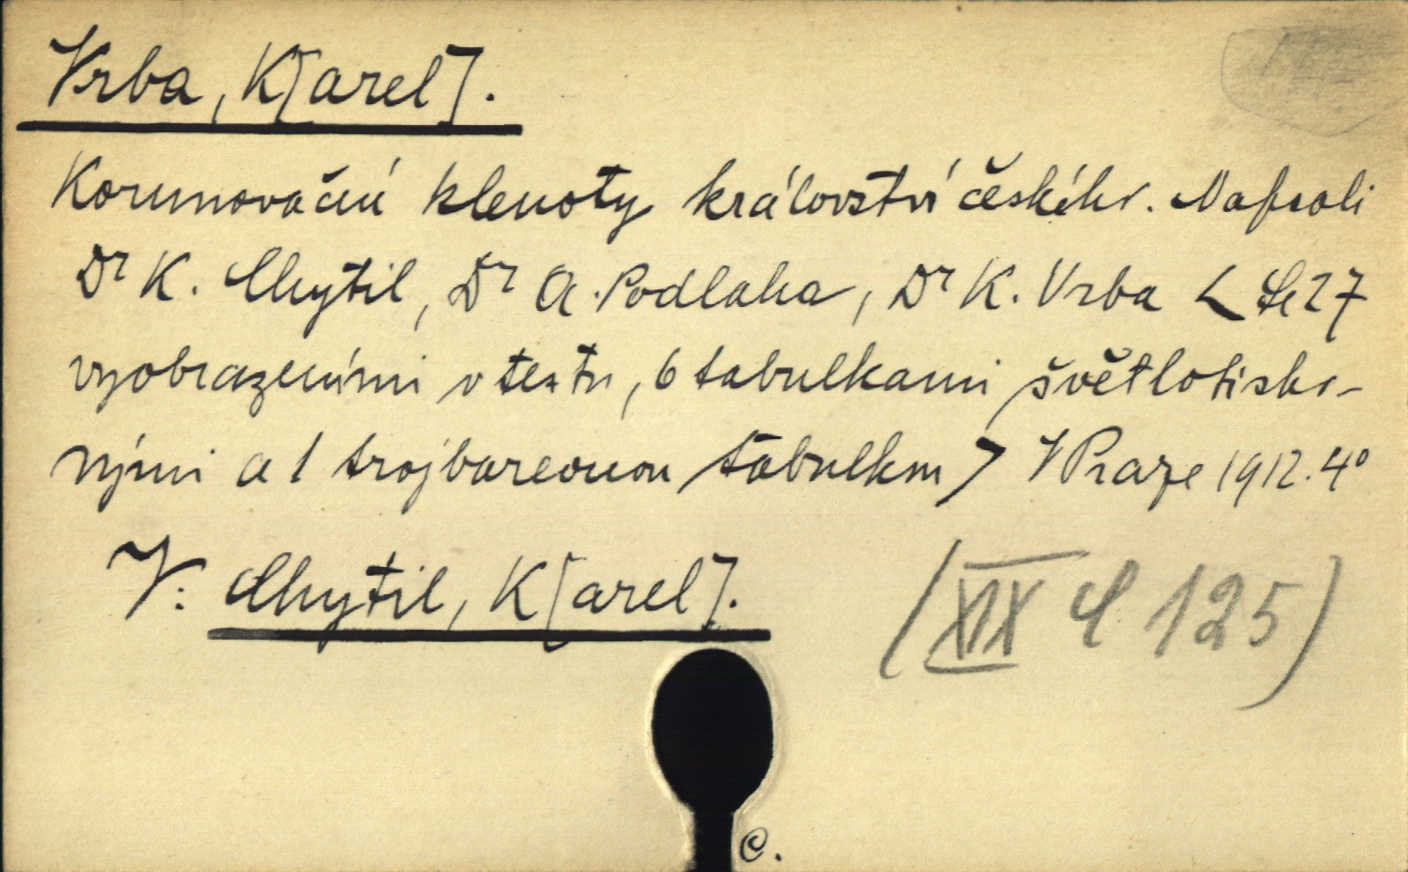 Vrba, K[arel].
Korunovační klenoty království českého. Napsali
Dr K. Chytil, Dr A. Podlaha, Dr K. Vrba < Se 27
vyobrazeními v textu, 6 tabulkami světlotisko-
vými a 1 trojbarevnou tabulkou > V Praze 1912. 4°
V: Chytil, K[arel].
(XIX C 125)
C.